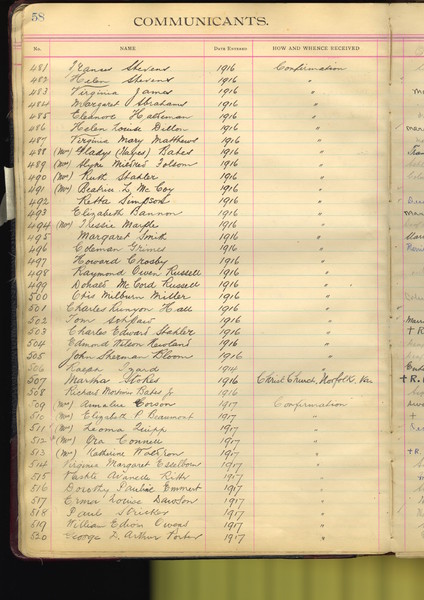 58
COMMUNICANTS.
No. NAME DATE ENTERED HOW AND WHENCE RECEIVED
481 Frances Stevens 1916 Confirmation
482 Helen Stevens 1916 "
483 Virginia James 1916 "
484 Margaret Abrahams 1916 "
485 Eleanor 1916 "
486 Helen Louise Dillon 1916 "
487 Virginia Mary Matthews 1916 "
488 (Mrs) Gladys (Hayes) Bates 1916 "
489 (Mrs) Mildred Folsom 1916 "
490 (Mrs) Ruth Stahler 1916 "
491 (Mrs) Beatrice L. McCoy 1916 "
492 Retta Simpson 1916 "
493 Elizabeth Bannon 1916 "
494 (Mrs) Marple 1916 "
495 Margaret Smith 1916 "
496 Coleman Grimes 1916 "
497 Howard Crosby 1916 "
498 Raymond Owen Russell 1916 "
499 Donald McCord Russell 1916 "
500 Otis Milburn Miller 1916 "
501 Charles Runyon Hall 1916 "
502 Tom 1916 "
503 Charles Edward Stahler 1916 "
504 Edmond Wilson 1916 "
505 John Sherman Bloom 1916 "
506 Izard 1914
507 Martha Stokes 1916 Christ Church, Norfolk, Va
508 Richard Bates Jr 1916
509 (Mrs) Annalee 1917 Confirmation
510 (Mrs) Elizabeth P. Beaumont 1917 "
511 (Mrs) Leoma 1917 "
512 (Mrs) Ora Connell 1917 "
513 (Mrs) Katherine 1917 "
514 Virginia Margaret 1917 "
515 1917 "
516 Dorothy Pauline Emmert 1917 "
517 Erma Louise Dawson 1917 "
518 Paul Stricker 1917 "
519 William Owens 1917 "
520 George L. Arthur Porter 1917 "